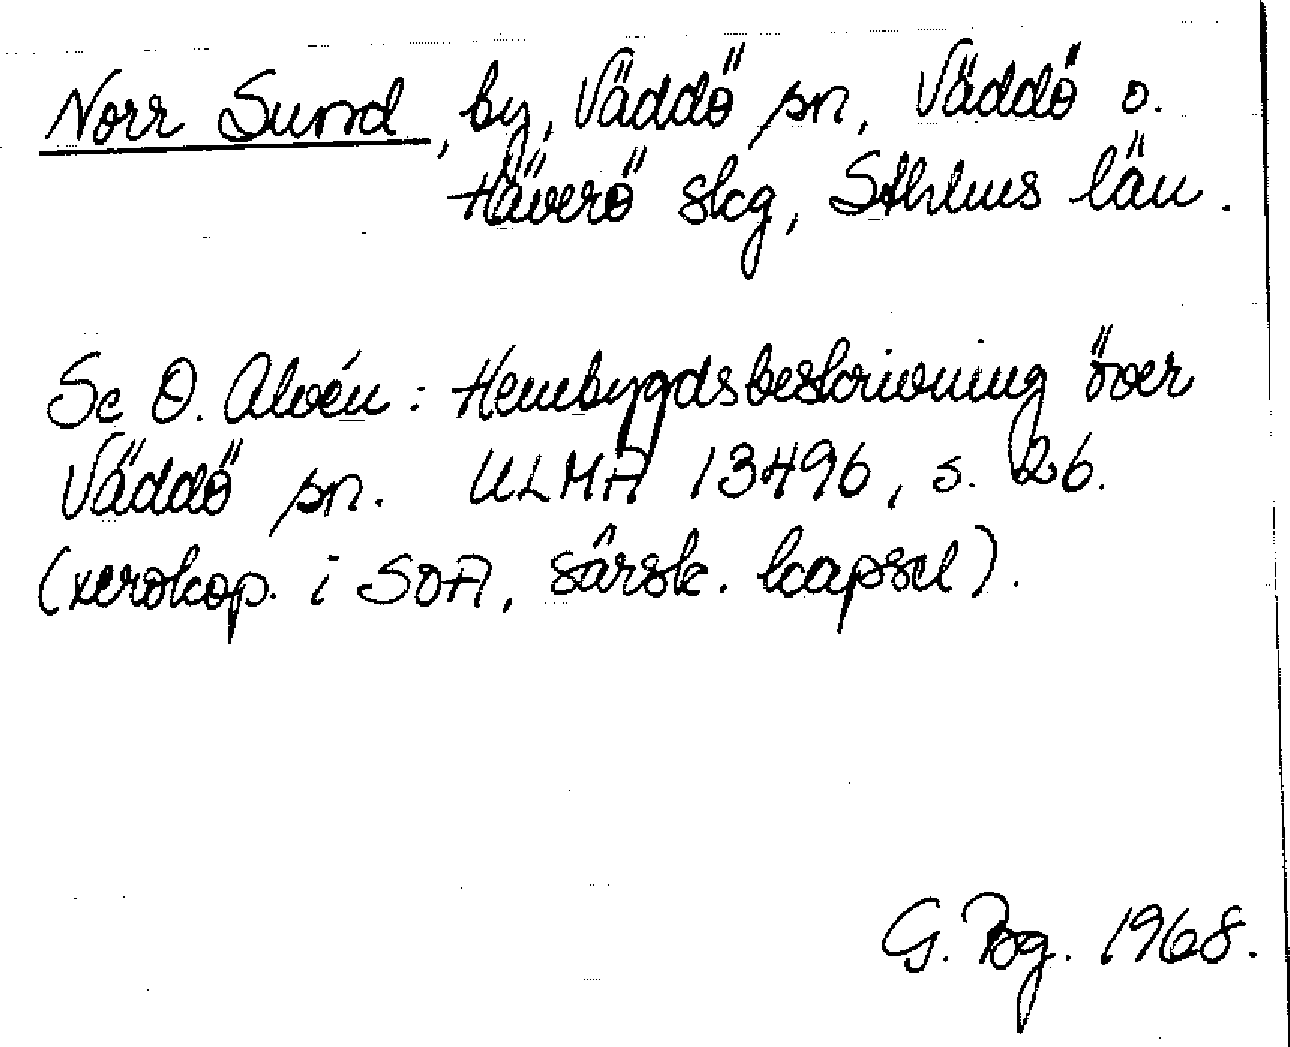 Norr Sund, by, Väddö sn, Väddö o.
Häverö skg, Sthlms län.
Se O. Alvén: Hembygdsbeskrivning över
Väddö sn. ULMA 13496, s. 26.
(xerokop. i SOA, särsk. kapsel).
G. Bg. 1968.